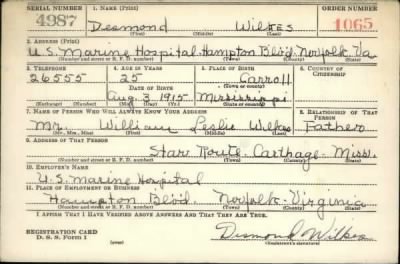 SERIAL NUMBER 1. NAME (Print) ORDER NUMBER
4987 Desmond Wilkes 1065
(First) (Middle) (Last)
2. ADDRESS (Print)
U.S. Marine Hospital. Hampton Blvd. Norfolk. Va
(Number and street or R. F. D. number) (Town) (County) (State)
3. TELEPHONE 4. AGE IN YEARS 5. PLACE OF BIRTH 6. COUNTRY OF CITIZENSHIP
26555 25 Carroll
DATE OF BIRTH (Town or county)
Aug. 3 1915 Mississippi
(Exchange) (Number) (Mo.) (Day) (Yr.) (State or country)
7. NAME OF PERSON WHO WILL ALWAYS KNOW YOUR ADDRESS 8. RELATIONSHIP OF THAT PERSON
Mr. William Leslie Wilkes Father
(Mr., Mrs., Miss) (First) (Middle) (Last)
9. ADDRESS OF THAT PERSON
Star Route. Carthage. Miss.
(Number and street or R. F. D. number) (Town) (County) (State)
10. EMPLOYER'S NAME
U.S. Marine Hospital
11. PLACE OF EMPLOYMENT OR BUSINESS
Hampton Blvd. Norfolk. Virginia
(Number and street or R. F. D. number) (Town) (County) (State)
I AFFIRM THAT I HAVE VERIFIED ABOVE ANSWERS AND THAT THEY ARE TRUE.
REGISTRATION CARD Desmond Wilkes
D. S. S. Form 1 (Registrant's signature)